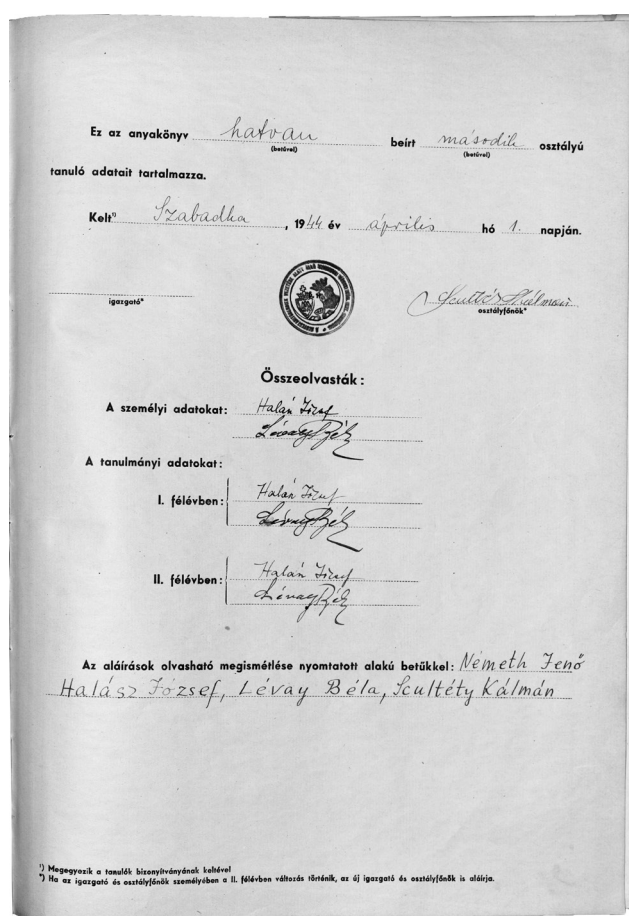 Ez az anyakönyv hatvan beírt második osztályú
(betűvel) (betűvel)
tanuló adatait tartalmazza.
Kelt¹) Szabadka, 1944 év április hó 1. napján.
igazgató* Scultéty Kálmán
osztályfőnök*
Összeolvasták:
A személyi adatokat: Halász József
Lévay Béla
A tanulmányi adatokat:
I. félévben: Halász József
Lévay Béla
II. félévben: Halász József
Lévay Béla
Az aláírások olvasható megismétlése nyomtatott alakú betűkkel: Németh Jenő
Halász József, Lévay Béla, Scultéty Kálmán
¹) Megegyezik a tanulók bizonyítványának keltével
*) Ha az igazgató és osztályfőnök személyében a II. félévben változás történik, az új igazgató és osztályfőnök is aláírja.